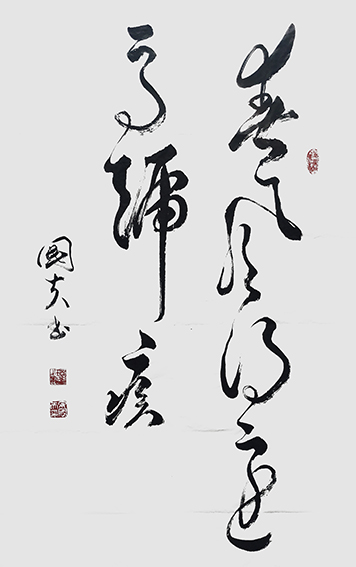 春风得意
马蹄疾
國夫书